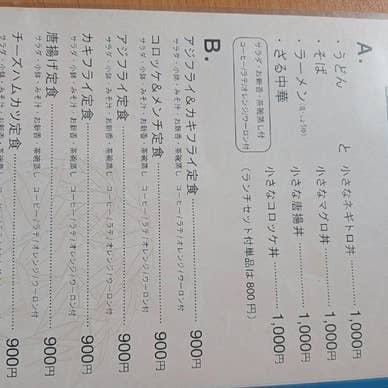 A.
・うどん と 小さなネギトロ丼……1,000円
・そば 小さなマグロ丼……1,000円
・ラーメン 小さな唐揚丼……1,000円
・ざる中華 小さなコロッケ丼……1,000円
サラダ・お新香・茶碗蒸し付
コーヒー/ラテ/オレンジ/ウーロン付
(ランチセット付単品は800円)
B.
アジフライ&カキフライ定食……900円
サラダ・小鉢・みそ汁・お新香・茶碗蒸し コーヒー/ラテ/オレンジ/ウーロン付
コロッケ&メンチ定食……900円
サラダ・小鉢・みそ汁・お新香・茶碗蒸し コーヒー/ラテ/オレンジ/ウーロン付
アジフライ定食……900円
サラダ・小鉢・みそ汁・お新香・茶碗蒸し コーヒー/ラテ/オレンジ/ウーロン付
カキフライ定食……900円
サラダ・小鉢・みそ汁・お新香・茶碗蒸し コーヒー/ラテ/オレンジ/ウーロン付
唐揚げ定食……900円
サラダ・小鉢・みそ汁・お新香・茶碗蒸し コーヒー/ラテ/オレンジ/ウーロン付
チーズハムカツ定食……900円
サラダ・小鉢・みそ汁・お新香・茶碗蒸し コーヒー/ラテ/オレンジ